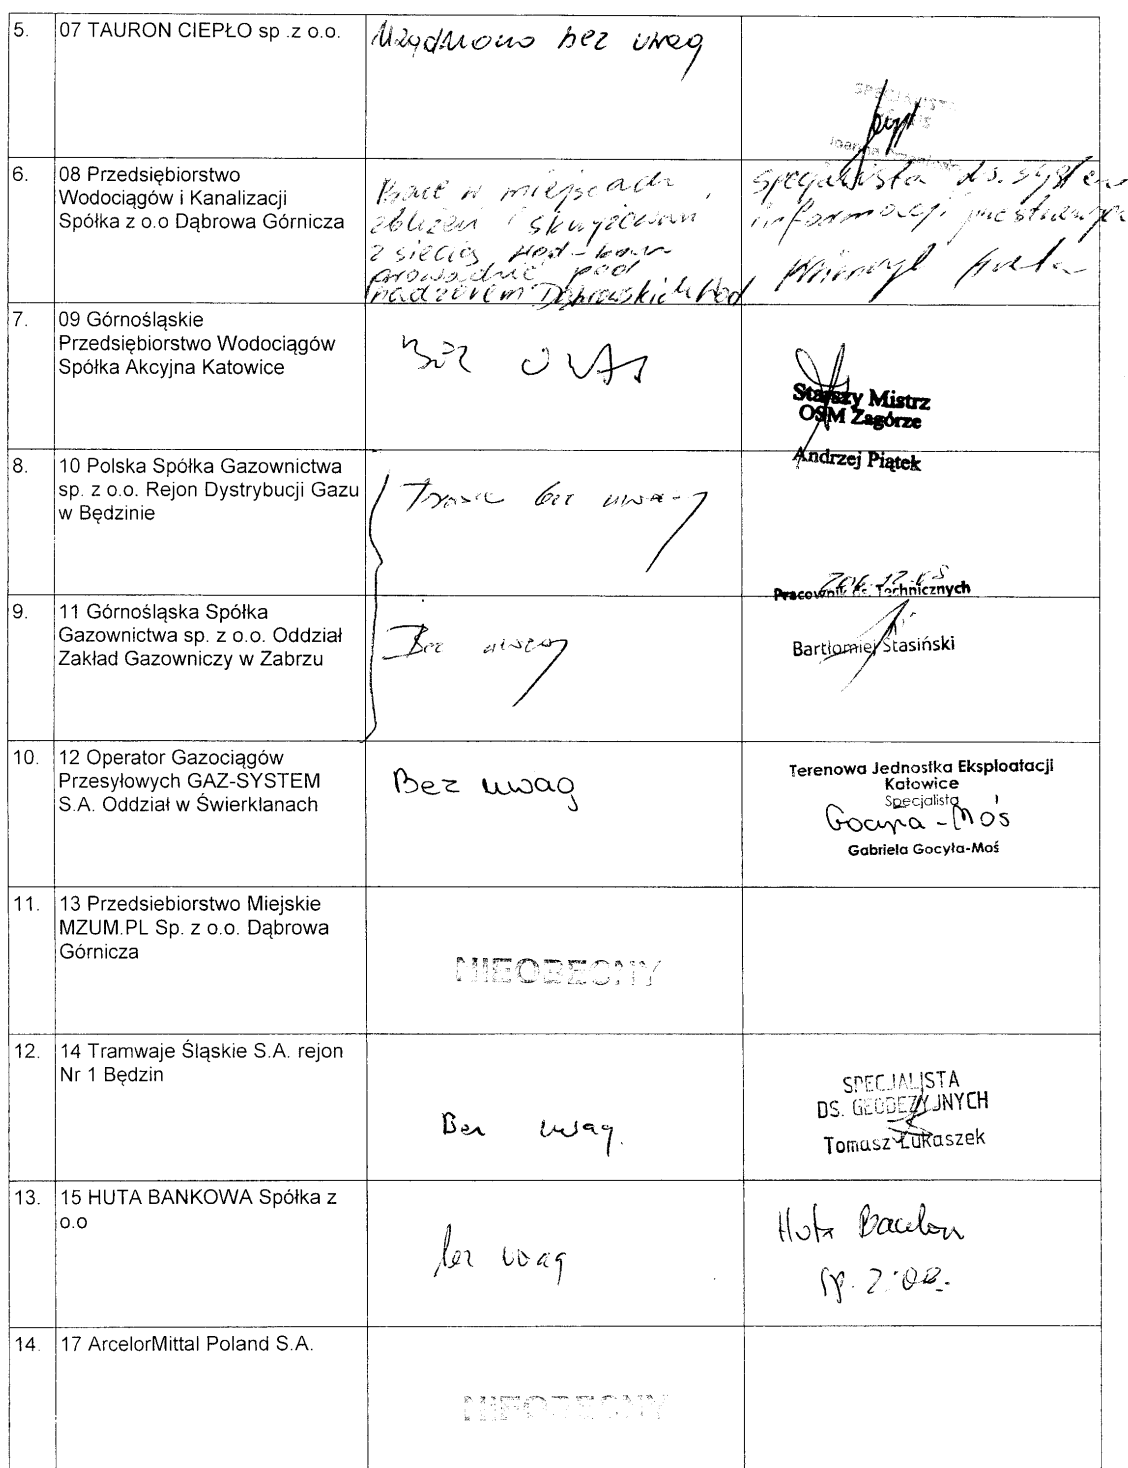 5. 07 TAURON CIEPŁO sp .z o.o. Uzgodniono bez uwag
6. 08 Przedsiębiorstwo
Wodociągów i Kanalizacji
Spółka z o.o Dąbrowa Górnicza
Prace w miejscach
zbliżeń i skrzyżowań
z siecią wod-kan
prowadzić pod
nadzorem Dąbrowskich Wod
specjalista ds. system
informacji przestrzennej
7. 09 Górnośląskie
Przedsiębiorstwo Wodociągów
Spółka Akcyjna Katowice
Bez uwag
Starszy Mistrz
OSM Zagórze
Andrzej Piątek
8. 10 Polska Spółka Gazownictwa
sp. z o.o. Rejon Dystrybucji Gazu
w Będzinie
Trasa bez uwag
Pracownik ds. Technicznych
9. 11 Górnośląska Spółka
Gazownictwa sp. z o.o. Oddział
Zakład Gazowniczy w Zabrzu
Bez uwag
Bartłomiej Stasiński
10. 12 Operator Gazociągów
Przesyłowych GAZ-SYSTEM
S.A. Oddział w Świerklanach
Bez uwag
Terenowa Jednostka Eksploatacji
Katowice
Specjalista
Gocyła-Moś
Gabriela Gocyła-Moś
11. 13 Przedsiebiorstwo Miejskie
MZUM.PL Sp. z o.o. Dąbrowa
Górnicza
NIEOBECNY
12. 14 Tramwaje Śląskie S.A. rejon
Nr 1 Będzin
Bez uwag.
SPECJALISTA
DS. GEODEZYJNYCH
Tomasz Łukaszek
13. 15 HUTA BANKOWA Spółka z
o.o
bez uwag
Huta
Sp. z o.o.
14. 17 ArcelorMittal Poland S.A.
NIEOBECNY